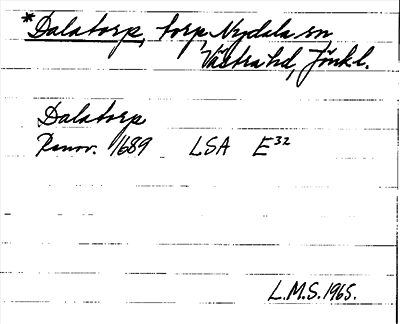 *Dalatorp, torp, Nydala sn
Västra hd, Jönkl.
Dalatorp
Ranov. 1689 LSA E32
L.M.S. 1965.